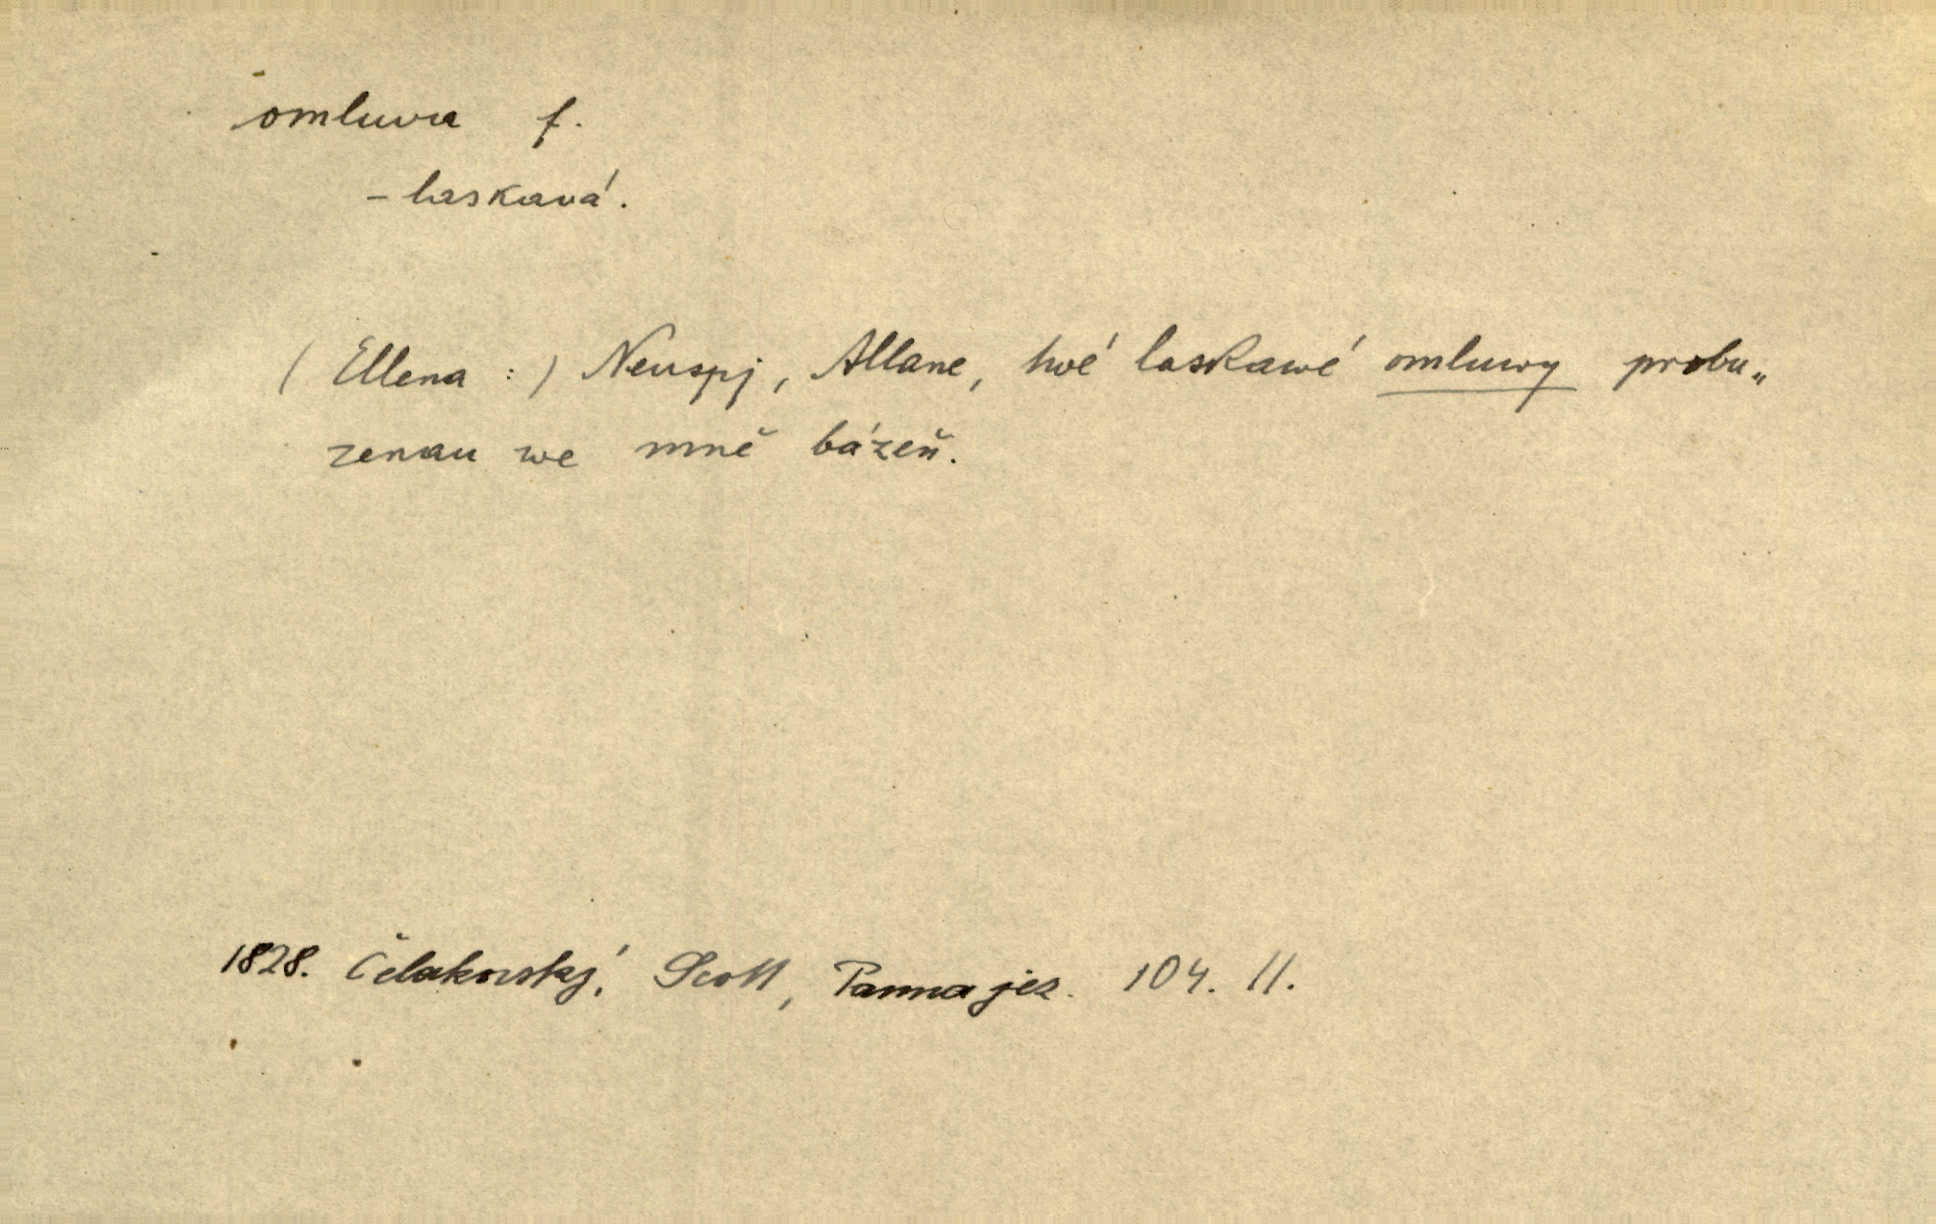 omluva f.
- laskavá.
( Ellena : ) Neuspj, Allane, twé laskawé omluwy probu„
zenau we mně bázeň.
1828. Čelakovský, Scott, Panna jez. 104. 11.